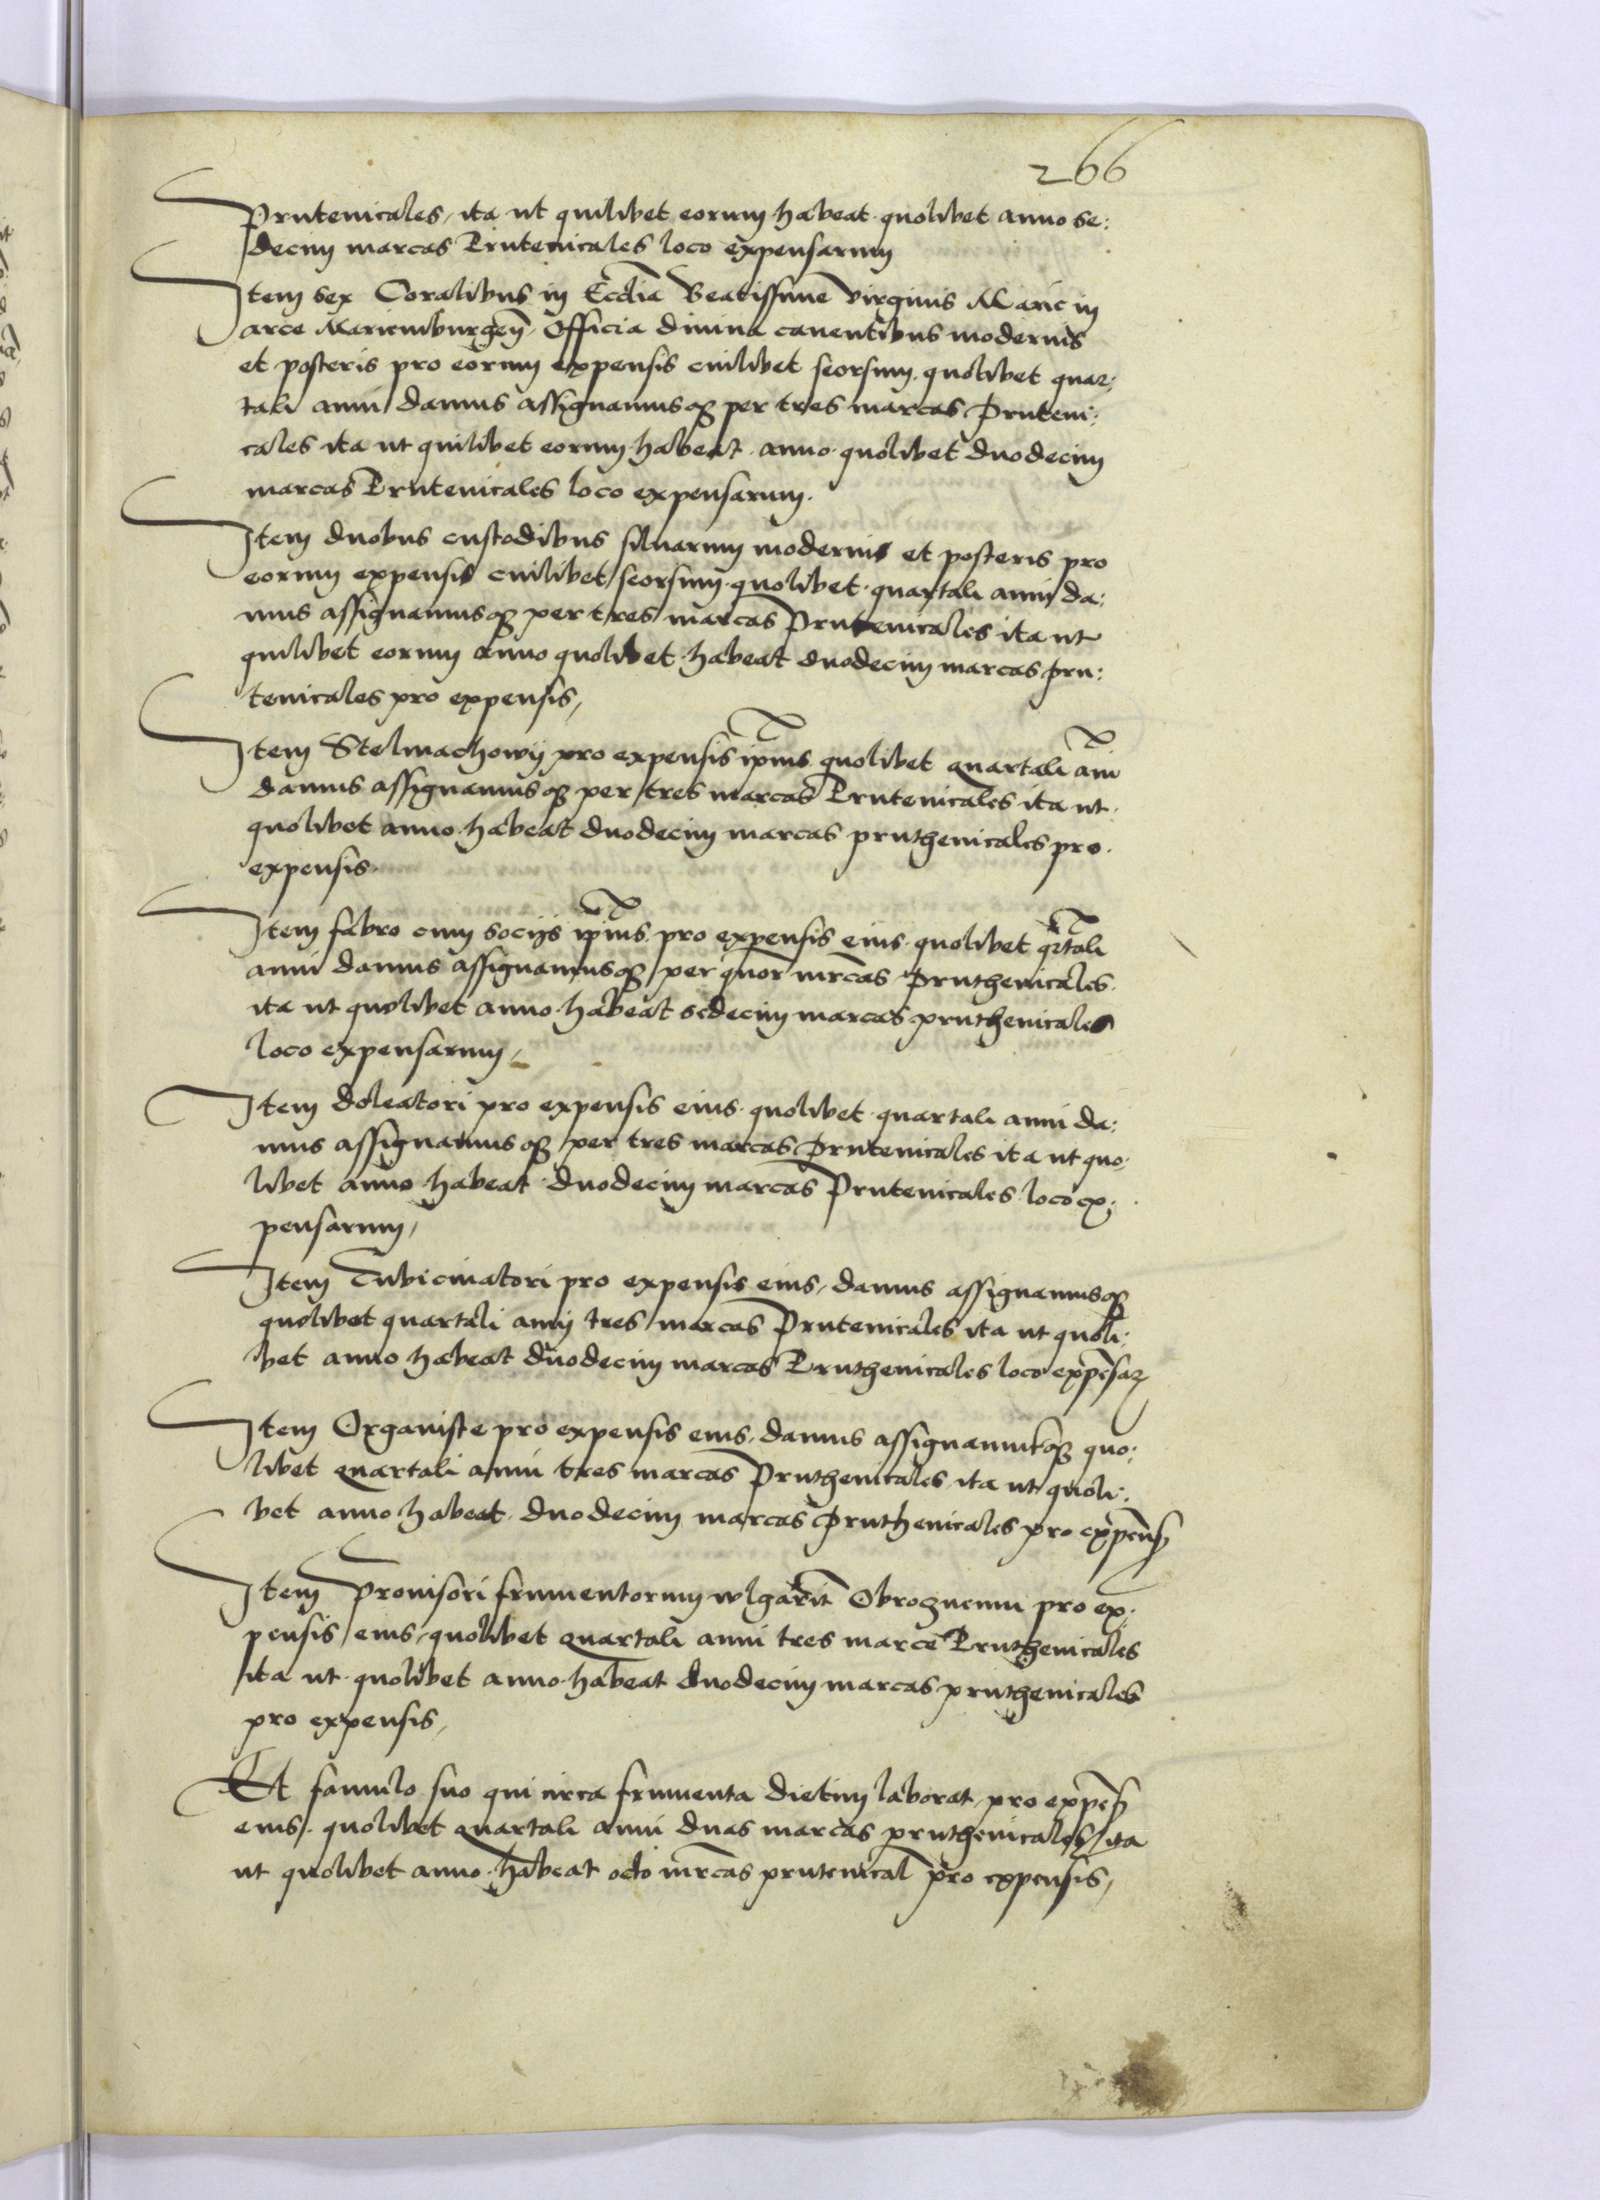 266
Prutenicales, ita ut quilibet eorum habeat quolibet anno se:
decim marcas Prutenicales loco expensarum
Item sex Coralibus in Ecclia Beatissime virginis Marie in
arce Mariemburgen̄ Officia divina canentibus modernis
et posteris pro eorum expensis cuilibet seorsum quolibet quar:
tali anni damus assignamusqꝫ per tres marcas Pruteni:
cales ita ut quilibet eorum habeat anno quolibet duodecim
marcas Prutenicales loco expensarum.
Item duobus custodibus siluarum modernis et posteris pro
eorum expensis cuilibet seorsum quolibet quartali anni da:
mus assignamusqꝫ per tres marcas Prutenicales ita ut
quilibet eorum anno quolibet habeat duodecim marcas pru:
tenicales pro expensis,
Item Stelmachowij pro expensis ipius quolibet quartali ani
damus assignamusqꝫ per tres marcas Prutenicales ita ut
quolibet anno habeat duodecim marcas pruthenicales pro
expensis.
Item fabro cum socijs ipius pro expensis eius quolibet qrtali
anni damus assignamusqꝫ per quor mrcas Pruthenicales
ita ut quolibet anno habeat sedecim marcas pruthenicales
loco expensarum,
Item doleatori pro expensis eius quolibet quartali anni da:
mus assignamusqꝫ per tres marcas Prutenicales ita ut quo:
libet anno habeat duodecim marcas Prutenicales loco ex:
pensarum,
Item Tubicinatori pro expensis eius, damus assignamusqꝫ
quolibet quartali anni tres marcas Prutenicales ita ut quoli:
bet anno habeat duodecim marcas Pruthenicales loco expēsaꝝ
Item Organiste pro expensis eius, damus assignamusqꝫ quo:
libet quartali anni tres marcas Pruthenicales ita ut quoli:
bet anno habeat duodecim marcas Pruthenicales pro expens̄
Item Provisori frumentorum wlgarit Obroznemu pro ex:
pensis eius, quolibet quartali anni tres marce Pruthenicales
ita ut quolibet anno habeat duodecim marcas pruthenicales
pro expensis,
Et famulo suo qui circa frumenta dietim laborat, pro expēs
eius, quolibet quartali anni duas marcas pruthenicales, ita
ut quolibet anno habeat octo mrcas prutenical pro expensis,